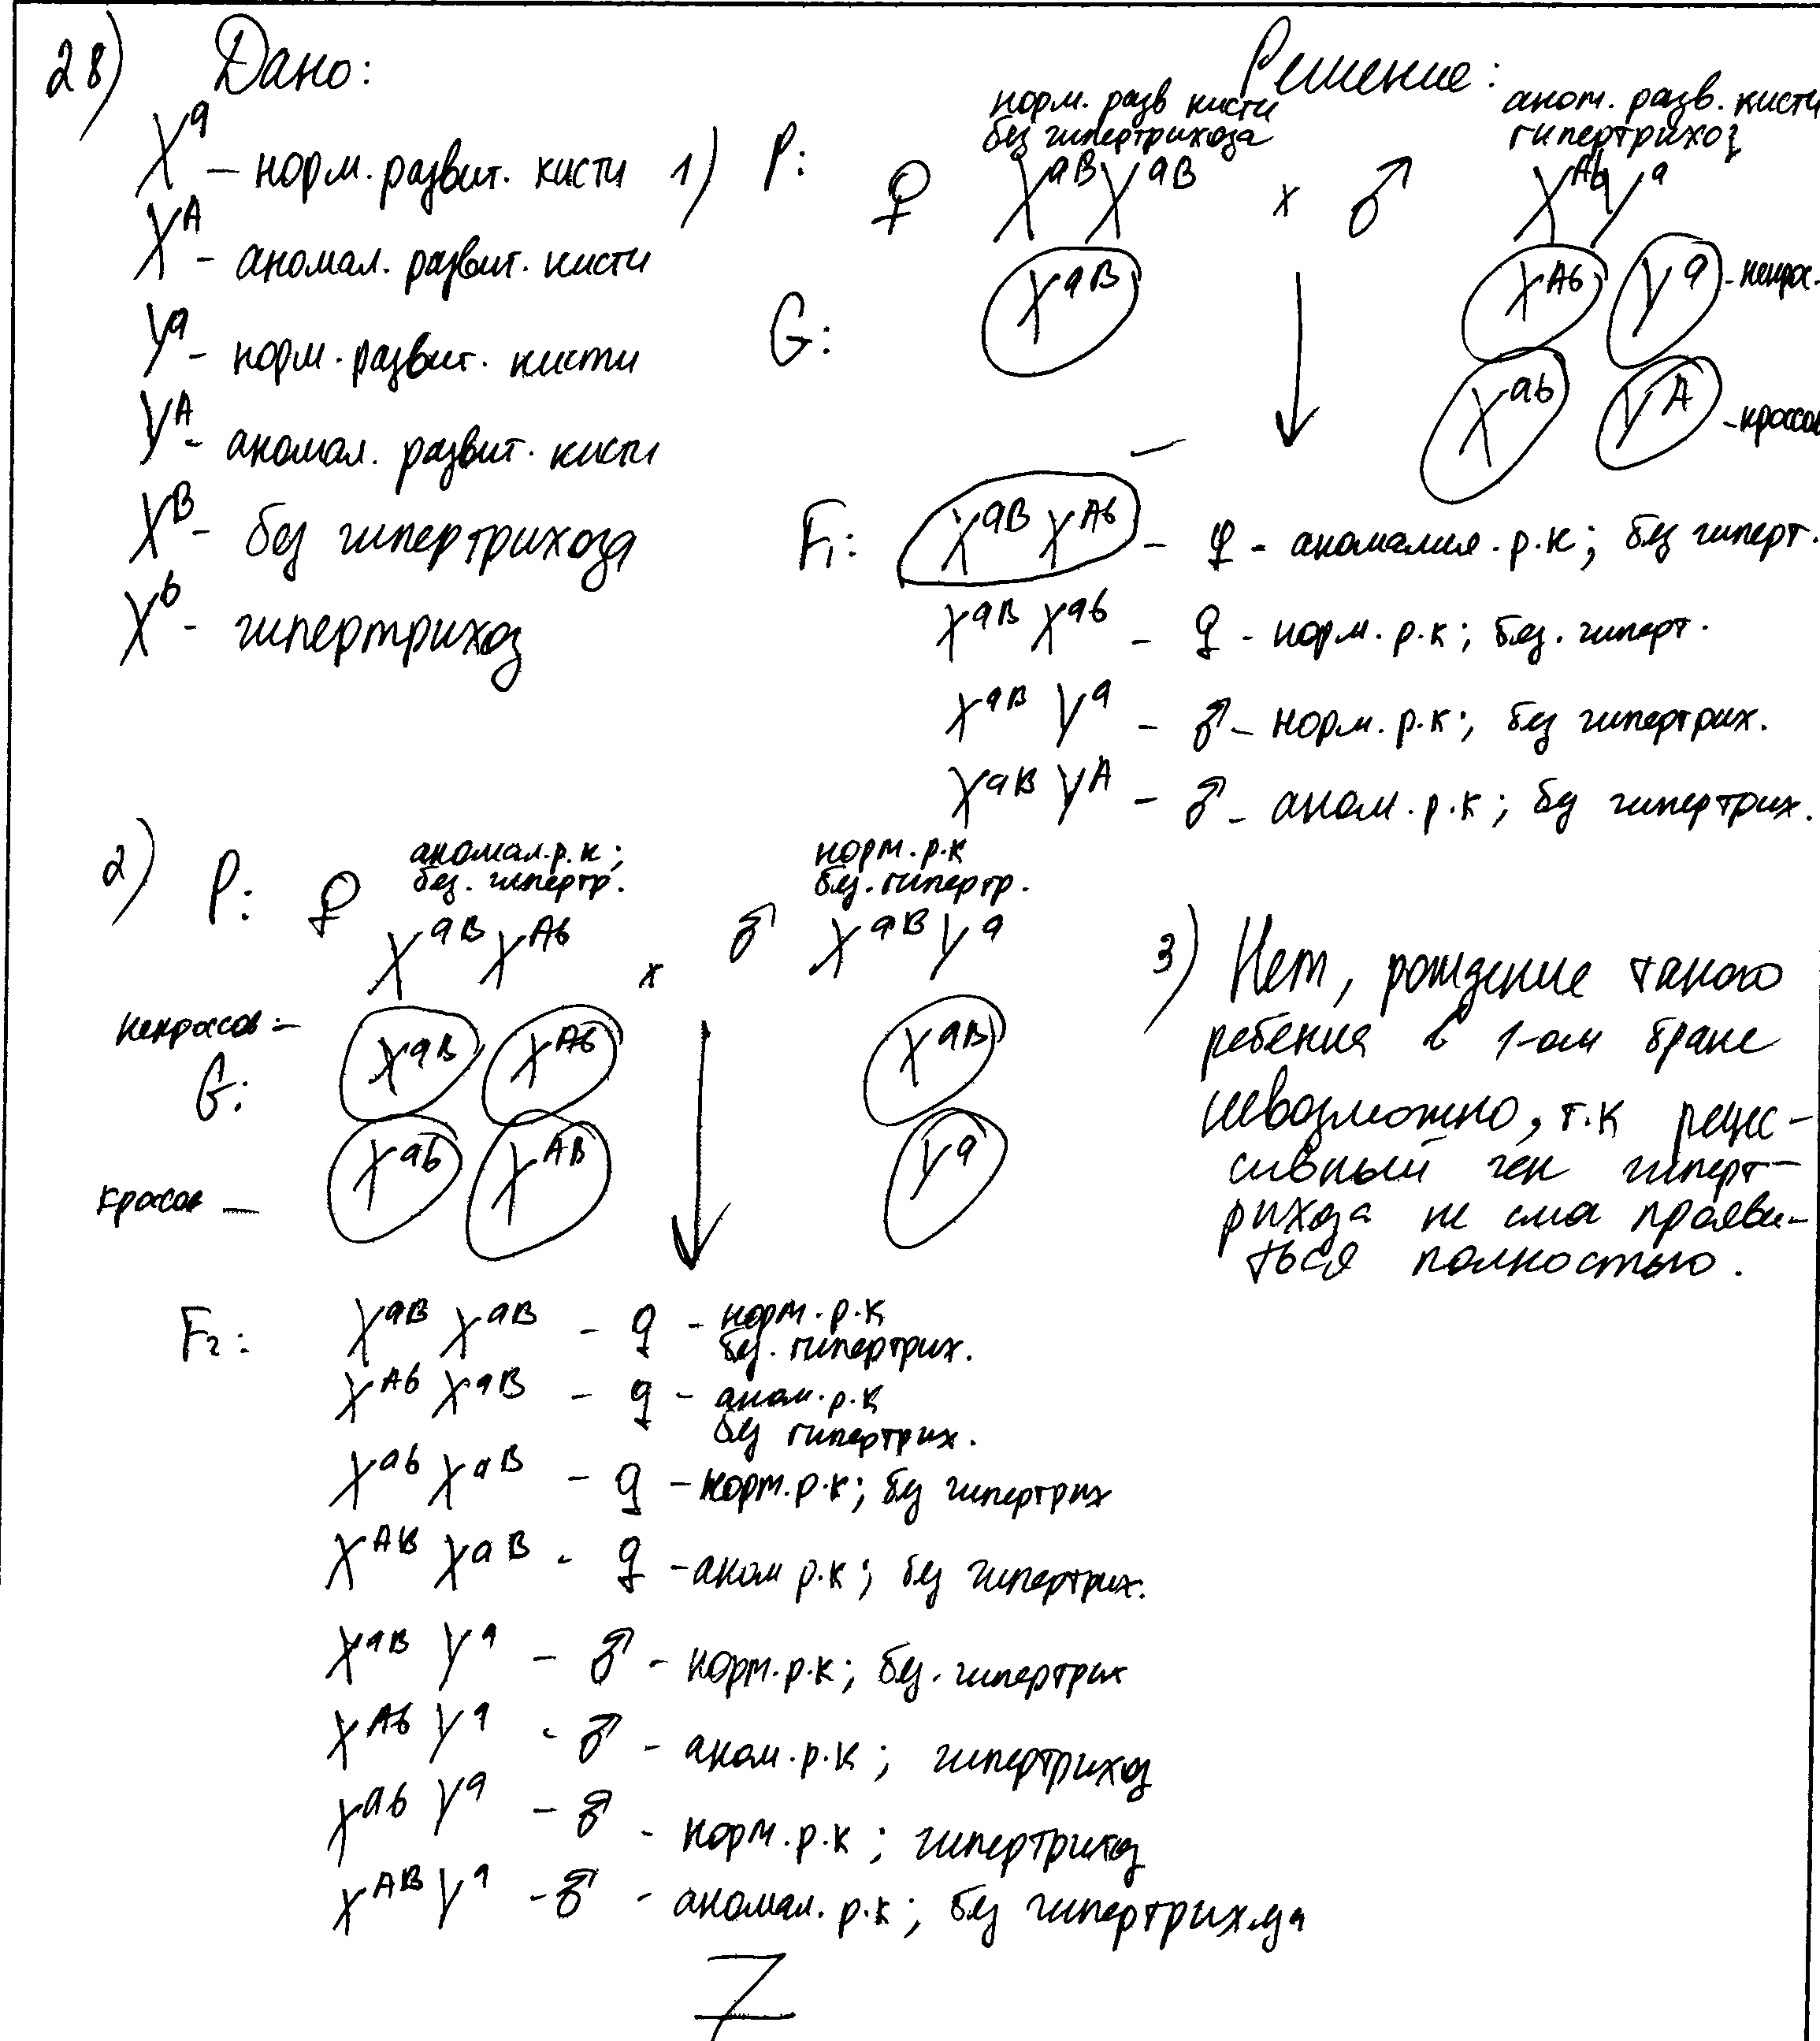 28) Дано:
X^a – норм. развит. кисти
X^A – аномал. развит. кисти
Y^a – норм. развит. кисти
Y^A – аномал. развит. кисти
X^B – без гипертрихоза
X^b – гипертрихоз
Решение:
норм. разв кисти
без гипертрихоза
аном. разв. кисти
гипертрихоз
1) P: ♀ X^aB X^aB x ♂ X^Ab Y^a
G: X^aB X^Ab Y^a - некрос-
X^ab Y^A - кроссов
F1: X^aB X^Ab – ♀ - аномалия. р.к; без гиперт.
X^aB X^ab – ♀ - норм. р.к; без. гиперт.
X^aB Y^a – ♂ – норм. р.к; без гипертрих.
X^aB Y^A – ♂ – аном. р.к; без гипертрих.
аномал. р.к;
без. гипертр.
норм. р.к
без. гипертр.
2) P: ♀ X^aB X^Ab x ♂ X^aB Y^a
некросов –
G: X^aB X^Ab X^aB
кросов – X^ab X^AB Y^a
F2: X^aB X^aB – ♀ – норм. р.к
без. гипертрих.
X^Ab X^aB – ♀ – аном. р.к
без гипертрих.
X^ab X^aB – ♀ – норм. р.к; без гипертрих
X^AB X^aB – ♀ – аном р.к; без гипертрих.
X^aB Y^a – ♂ – норм. р.к; без. гипертрих
X^Ab Y^a – ♂ – аном. р.к; гипертрихоз
X^ab Y^a – ♂ – норм. р.к; гипертрихоз
X^AB Y^a – ♂ – аномал. р.к; без гипертрихоза
3) Нет, рождение такого
ребенка в 1-ом браке
невозможно, т.к рецес-
сивный ген гиперт-
рихоза не смог прояви-
ться полностью.
Z